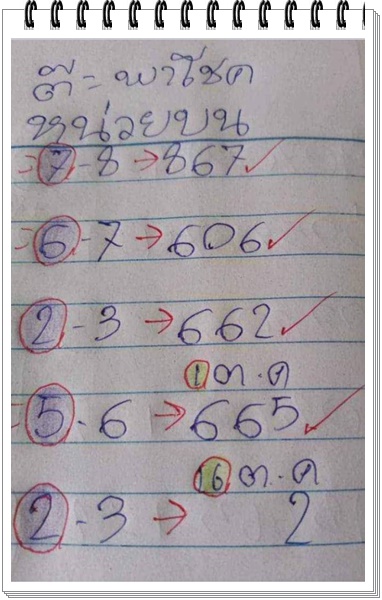 ตี๋ = พาโชค
หน่วยบน
→ 7 - 8 → 867 ✓
→ 6 - 7 → 606 ✓
2 - 3 → 662 ✓
1 ต.ค
5 - 6 → 665 ✓
16 ต.ค
2 - 3 → 2